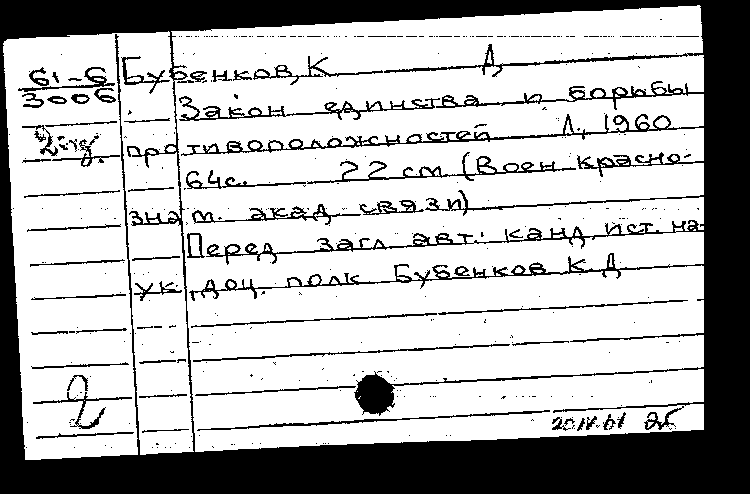 61-6 Бубенков, К Д,
3006 Закон единства и борьбы
2 противоположностей Л., 1960
64с. 22 см (Воен красно-
знам. акад связи)
Перед загл авт.: канд. ист. на-
ук, доц. полк Бубенков К. Д
2
20.IV.61